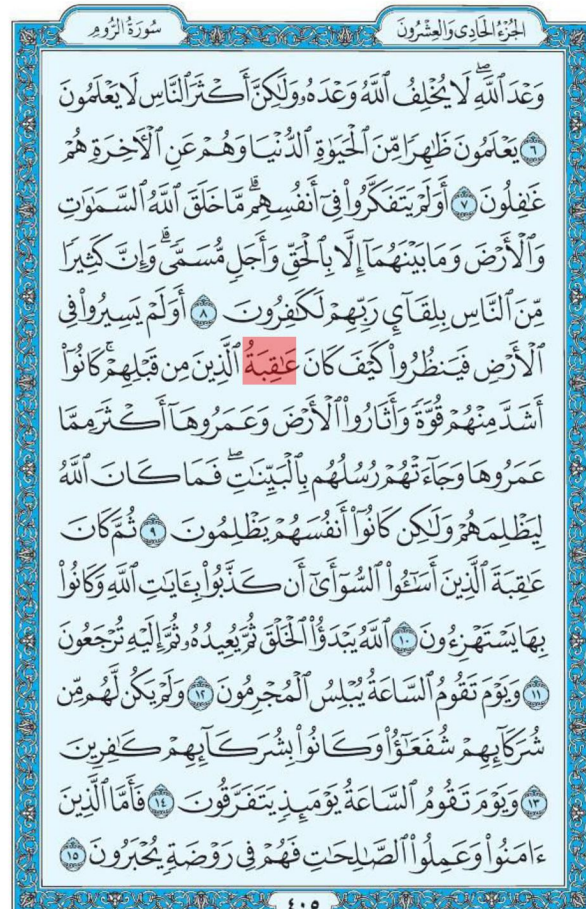 الجُزْءُ الحَادِى وَالعِشْرُونَ
سُورَةُ الرُّومِ
وَعْدَ ٱللَّهِۖ لَا يُخْلِفُ ٱللَّهُ وَعْدَهُۥ وَلَٰكِنَّ أَكْثَرَ ٱلنَّاسِ لَا يَعْلَمُونَ
٦ يَعْلَمُونَ ظَٰهِرًا مِّنَ ٱلْحَيَوٰةِ ٱلدُّنْيَا وَهُمْ عَنِ ٱلْأٓخِرَةِ هُمْ
غَٰفِلُونَ ٧ أَوَلَمْ يَتَفَكَّرُوا۟ فِىٓ أَنفُسِهِمۗ مَّا خَلَقَ ٱللَّهُ ٱلسَّمَٰوَٰتِ
وَٱلْأَرْضَ وَمَا بَيْنَهُمَآ إِلَّا بِٱلْحَقِّ وَأَجَلٍ مُّسَمًّىۗ وَإِنَّ كَثِيرًا
مِّنَ ٱلنَّاسِ بِلِقَآئِ رَبِّهِمْ لَكَٰفِرُونَ ٨ أَوَلَمْ يَسِيرُوا۟ فِى
ٱلْأَرْضِ فَيَنظُرُوا۟ كَيْفَ كَانَ عَٰقِبَةُ ٱلَّذِينَ مِن قَبْلِهِمْۚ كَانُوٓا۟
أَشَدَّ مِنْهُمْ قُوَّةً وَأَثَارُوا۟ ٱلْأَرْضَ وَعَمَرُوهَآ أَكْثَرَ مِمَّا
عَمَرُوهَا وَجَآءَتْهُمْ رُسُلُهُم بِٱلْبَيِّنَٰتِۖ فَمَا كَانَ ٱللَّهُ
لِيَظْلِمَهُمْ وَلَٰكِن كَانُوٓا۟ أَنفُسَهُمْ يَظْلِمُونَ ٩ ثُمَّ كَانَ
عَٰقِبَةَ ٱلَّذِينَ أَسَٰٓـُٔوا۟ ٱلسُّوٓأَىٰٓ أَن كَذَّبُوا۟ بِـَٔايَٰتِ ٱللَّهِ وَكَانُوا۟
بِهَا يَسْتَهْزِءُونَ ١٠ ٱللَّهُ يَبْدَؤُا۟ ٱلْخَلْقَ ثُمَّ يُعِيدُهُۥ ثُمَّ إِلَيْهِ تُرْجَعُونَ
١١ وَيَوْمَ تَقُومُ ٱلسَّاعَةُ يُبْلِسُ ٱلْمُجْرِمُونَ ١٢ وَلَمْ يَكُن لَّهُم مِّن
شُرَكَآئِهِمْ شُفَعَٰٓؤُا۟ وَكَانُوا۟ بِشُرَكَآئِهِمْ كَٰفِرِينَ
١٣ وَيَوْمَ تَقُومُ ٱلسَّاعَةُ يَوْمَئِذٍ يَتَفَرَّقُونَ ١٤ فَأَمَّا ٱلَّذِينَ
ءَامَنُوا۟ وَعَمِلُوا۟ ٱلصَّٰلِحَٰتِ فَهُمْ فِى رَوْضَةٍ يُحْبَرُونَ ١٥
٤٠٥